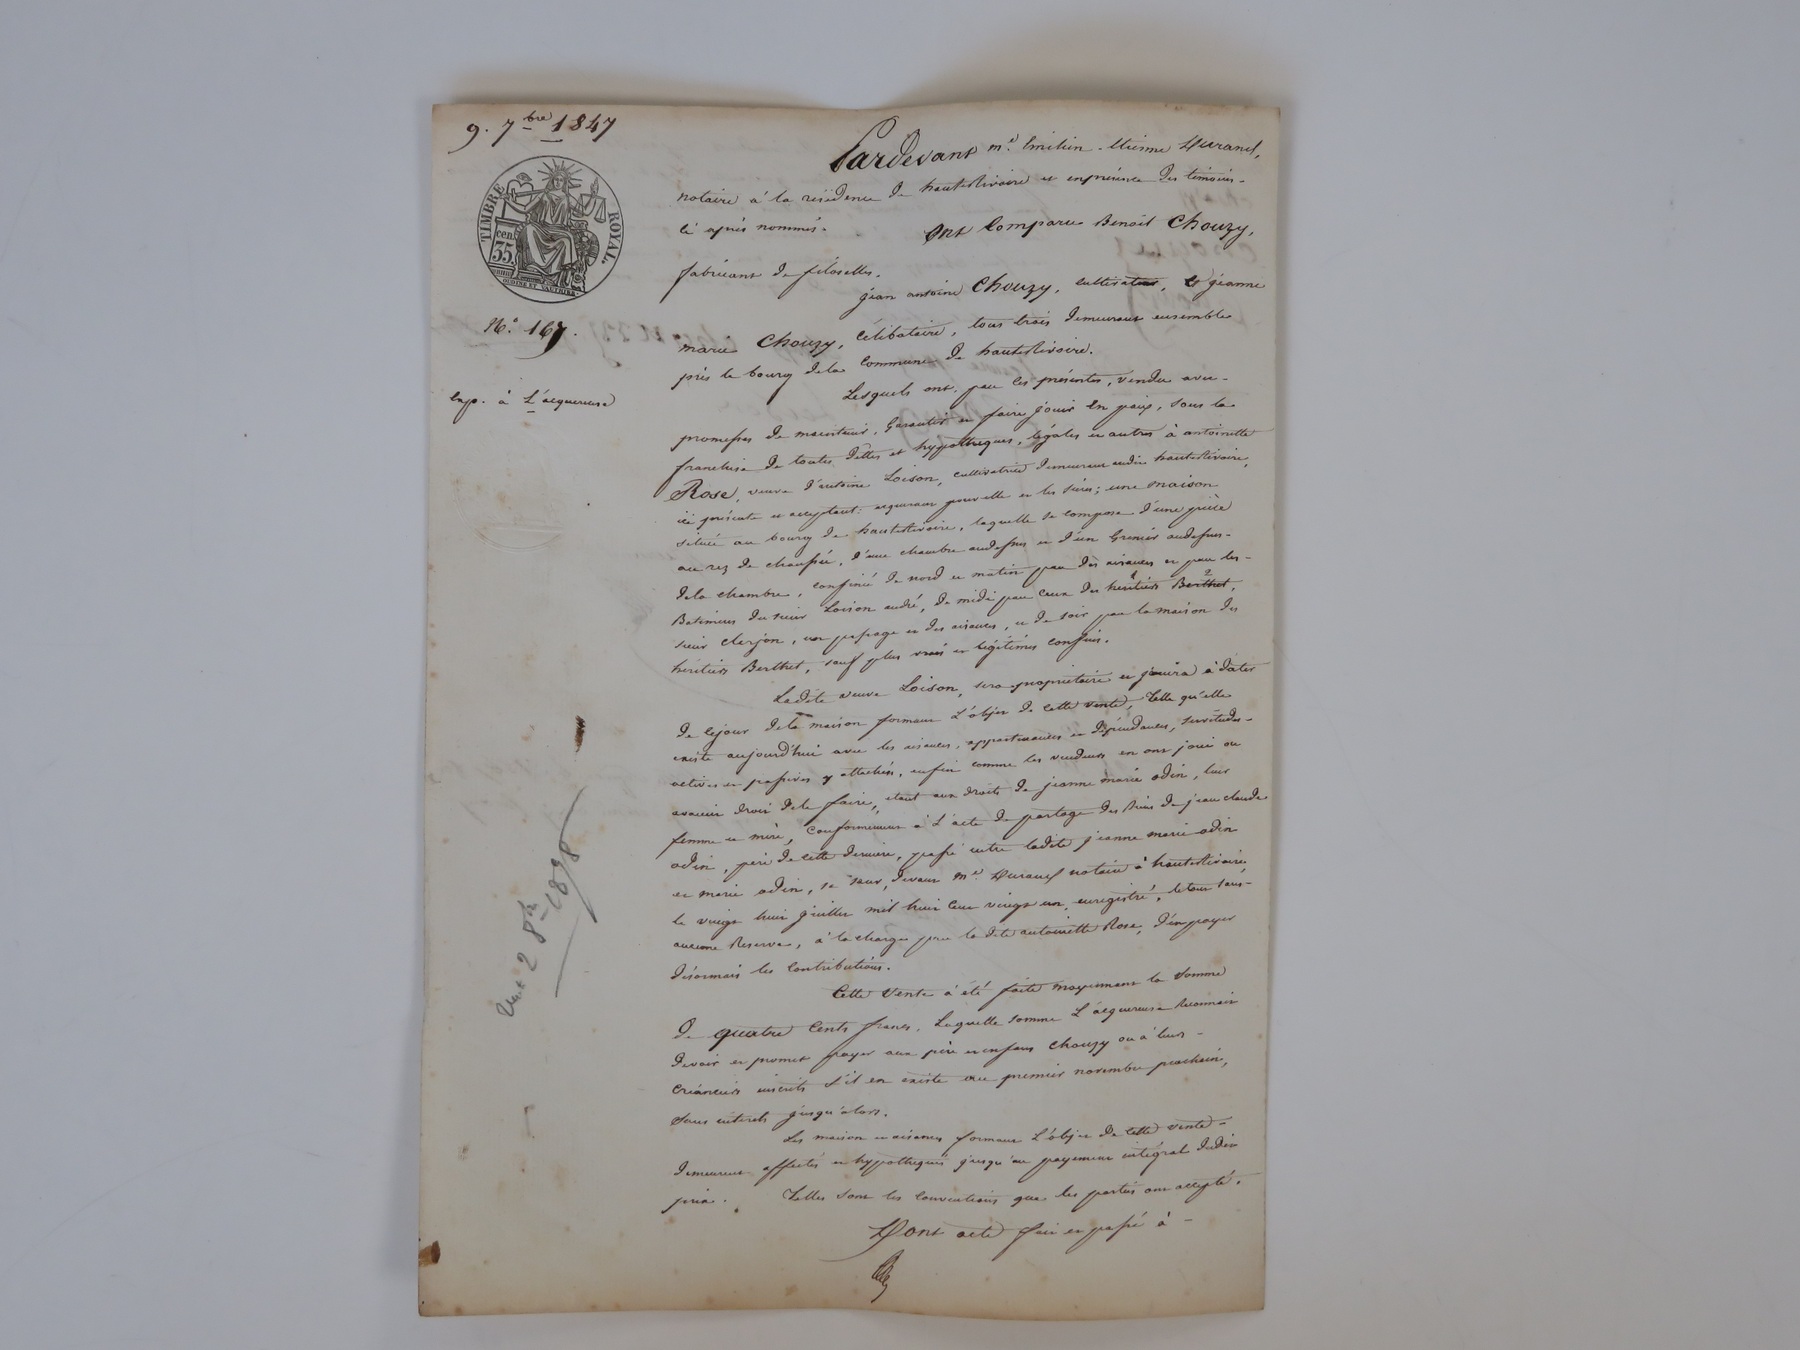 9. 7bre 1847
TIMBRE ROYAL.
cen. 35.
N.° 167.
Exp. à L'acquereuse
Vu x 2 8bre 1898
Pardevant m.e Emilien-Etienne Durand,
notaire à la résidence de hauterivoire et enprésence des témoins-
ci après nommés.
Ont Comparu Benoît Chouzy,
fabricant de filoselles.
jean antoine Chouzy, cultivateur, & jéanne
marie Chouzy, célibataire, tous trois demeurant ensemble
près le bourg dela commune de hauterivoire.
Lesquels ont, par ces présentes, vendu avec-
promesses de maintenir, Garantir et faire jouir En paix, sous la
franchise de toutes dettes et hypothèques, légales et autres à antoinette
Rose, veuve d'antoine Loison, cultivatrice demeurant audit hauterivoire,
ici présente et acceptant: acquerant pour elle et les siens; une maison
située au bourg de hauterivoire, laquelle se compose d'une pièce
au rez de chaussée, d'une chambre audessus et d'un Grenier audessus-
dela chambre, confiné de nord et matin par des aisances et par les-
Batimens du sieur Loison andré, de midi par ceux des heritiers Berthet,
sieur clerjon, un passage et des aisances, et de soir par la maison des
héritiers Berthet, sauf plus vrais et légitimes confins.
Ladite veuve Loison, sera propriétaire et jouira à dater
de cejour dela maison formant L'objet de cette vente, Telle qu'elle
existe aujourd'hui avec les aisances, appartenances et dépendances, servitudes-
actives et passives y attachés, enfin comme les vendeurs en ont joui ou
avaient droit dele faire, étant aux droits de jeanne marie odin, leur
femme et mère, conformément à L'acte de partage des Biens de jean claude
odin, père de cette dernière, passé entre ladite jeanne marie odin
et marie odin, sa sœur, devant m.e Durand notaire à hauterivoire,
le vingt huit juillet mil huit cent vingt un, enregistré, letout sans-
aucune Reserve, à la charge par la dite antoinette Rose, d'en payer
désormais les Contributions.
Cette Vente à été faite moyennant la Somme
de quatre Cents francs, Laquelle somme L'acquereuse Reconnait
devoir et promet payer aux père et enfans Chouzy ou à leurs-
Créanciers inscrits s'il en existe au premier novembre prochain,
Sans intérets jusqu'alors.
Les maison et aisances formant L'objet de cette vente-
demeurent affectés et hypothequés jusqu'au payement intégral dudit
prix. Telles sont les conventions que les parties ont accepté.
Dont acte fait et passé à -